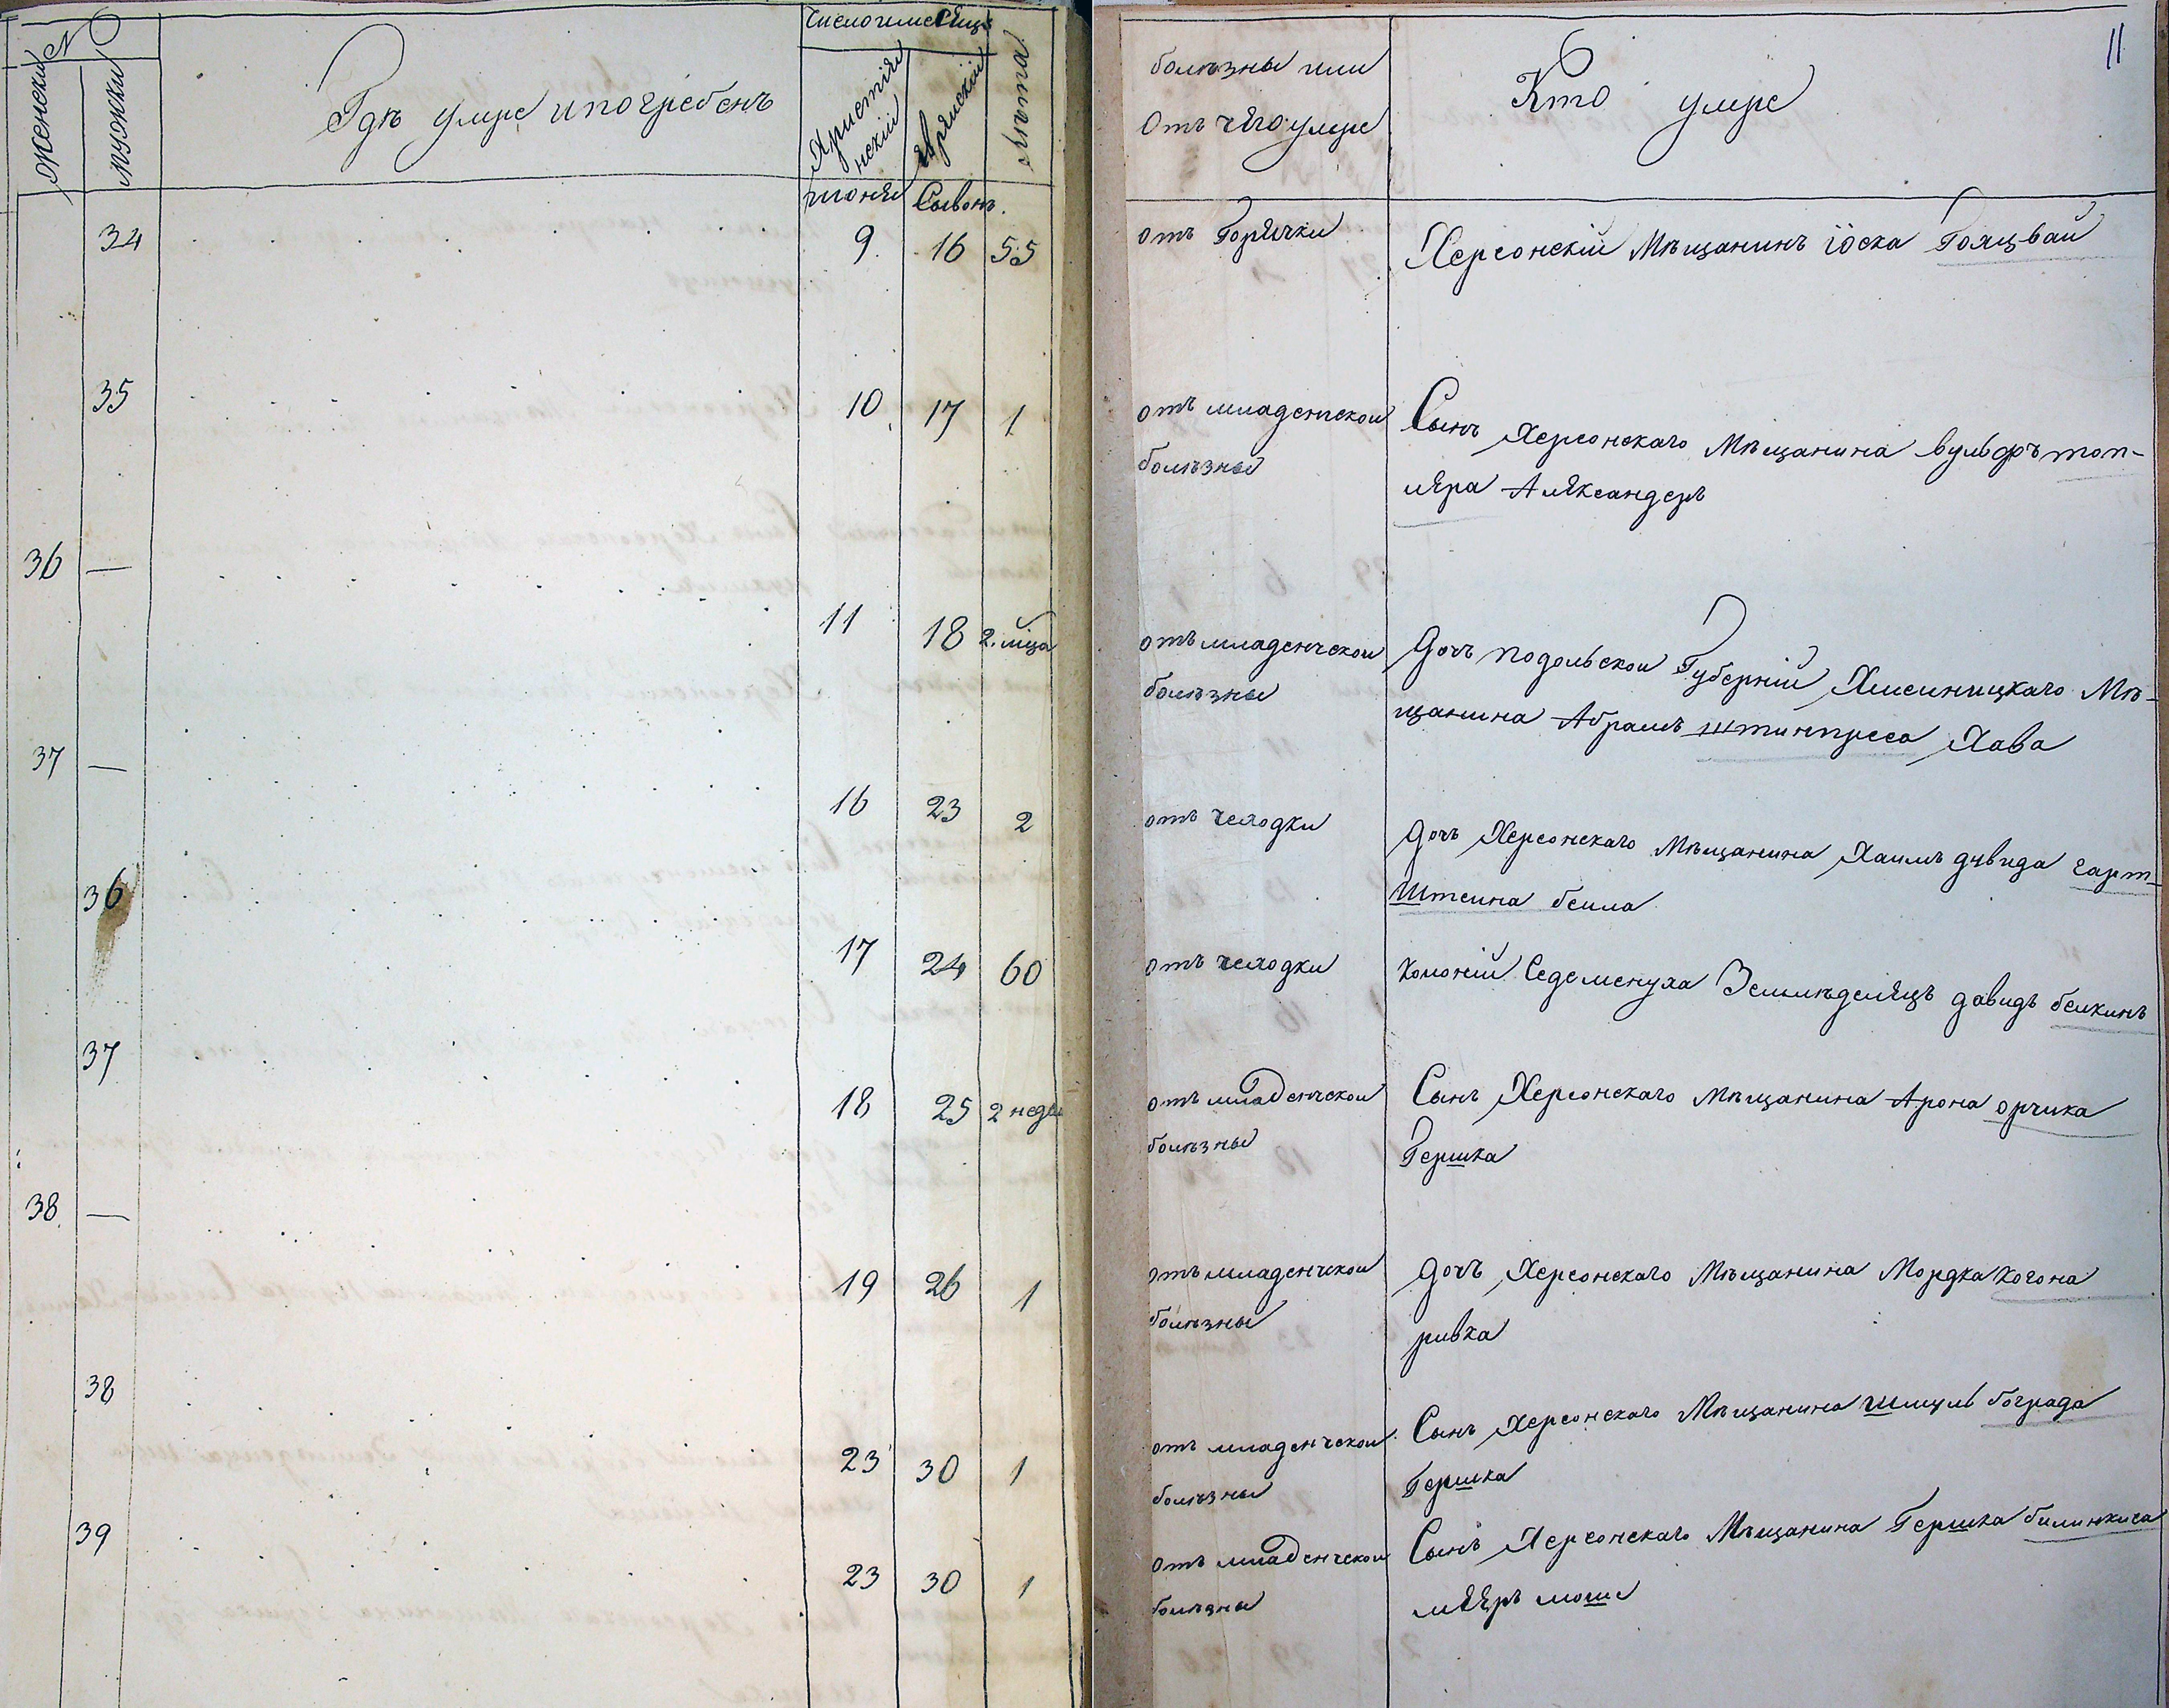 №
женски
мужски
Гдѣ умре и погребенъ
число и месяцъ
Христіянскій
Еврейскій
лѣта
11
болѣзны или
Отъ чего умре
Кто умре
июня Сывонъ.
34 9 16 55 отъ Горячки Херсонскій Мѣщанинъ Іоска Гояцвай
35 10 17 1 отъ младенческой Сынъ Херсонскаго Мѣщанина Вульфъ топ-
болѣзны ляра Александеръ
36 — 11 18 2. мца отъ младенческой Дочъ подольской Губерніи Хмелницкаго Мѣ-
болѣзны щанина Абрамъ штинпреса Хава
37 — 16 23 2 отъ чеходки Дочъ Херсонскаго Мѣщанина Хаимъ давида гарт-
штеина беила
36 17 24 60 отъ чеходки Колоніи Седеменуха Земледелецъ давидъ белкинъ
37 18 25 2 неде отъ младенческой Сынъ Херсонскаго мѣщанина Арона орчика
болѣзны Гершка
38 — 19 26 1 отъ младенческой дочъ Херсонскаго Мѣщанина Мордка Когона
болѣзны ривка
38 23 30 1 отъ младенческой Сынъ Херсонскаго Мѣщанина Шмуль бограда
болѣзны Гершка
39 23 30 1 отъ младенческой Сынъ Херсонскаго Мѣщанина Гершка билинкиса
болѣзны меэръ моше